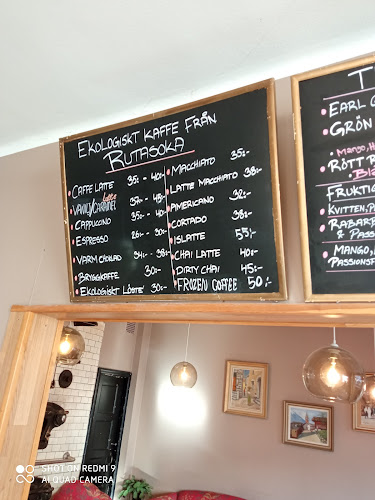 EKOLOGISKT KAFFE FRÅN
RUTASOKA
• CAFFE LATTE 35:- 40:-
• VANILJ/CARAMEL Latte 37:- 42:-
• CAPPUCCINO 35:- 40:-
• ESPRESSO 26:- 30:-
• VARM CHOKLAD 34:- 38:-
• BRYGGKAFFE 30:-
• EKOLOGISKT LÖSTE 30:-
• MACCHIATO 35:-
• LATTE MACCHIATO 38:-
• AMERICANO 32:-
• CORTADO 38:-
• ISLATTE 55:-
• CHAI LATTE 40:-
• DIRTY CHAI 45:-
• FROZEN COFFEE 50:-
T
• EARL G
• GRÖN
MANGO, H
• RÖTT
FRUKTIG
• KVITTEN, P
• RABARB
& PASS
• MANGO,
PASSIONSF
SHOT ON REDMI 9
AI QUAD CAMERA